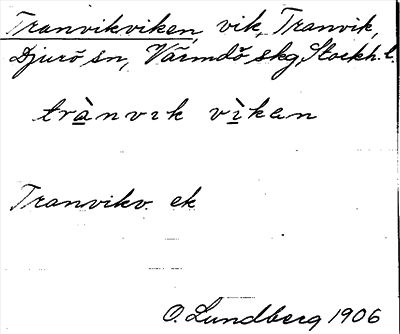 Tranvikviken, vik, Tranvik,
Djurö sn, Värmdö skg, Stockh. l.
trànvɩk vìkən
Tranvikv. ek
O. Lundberg 1906